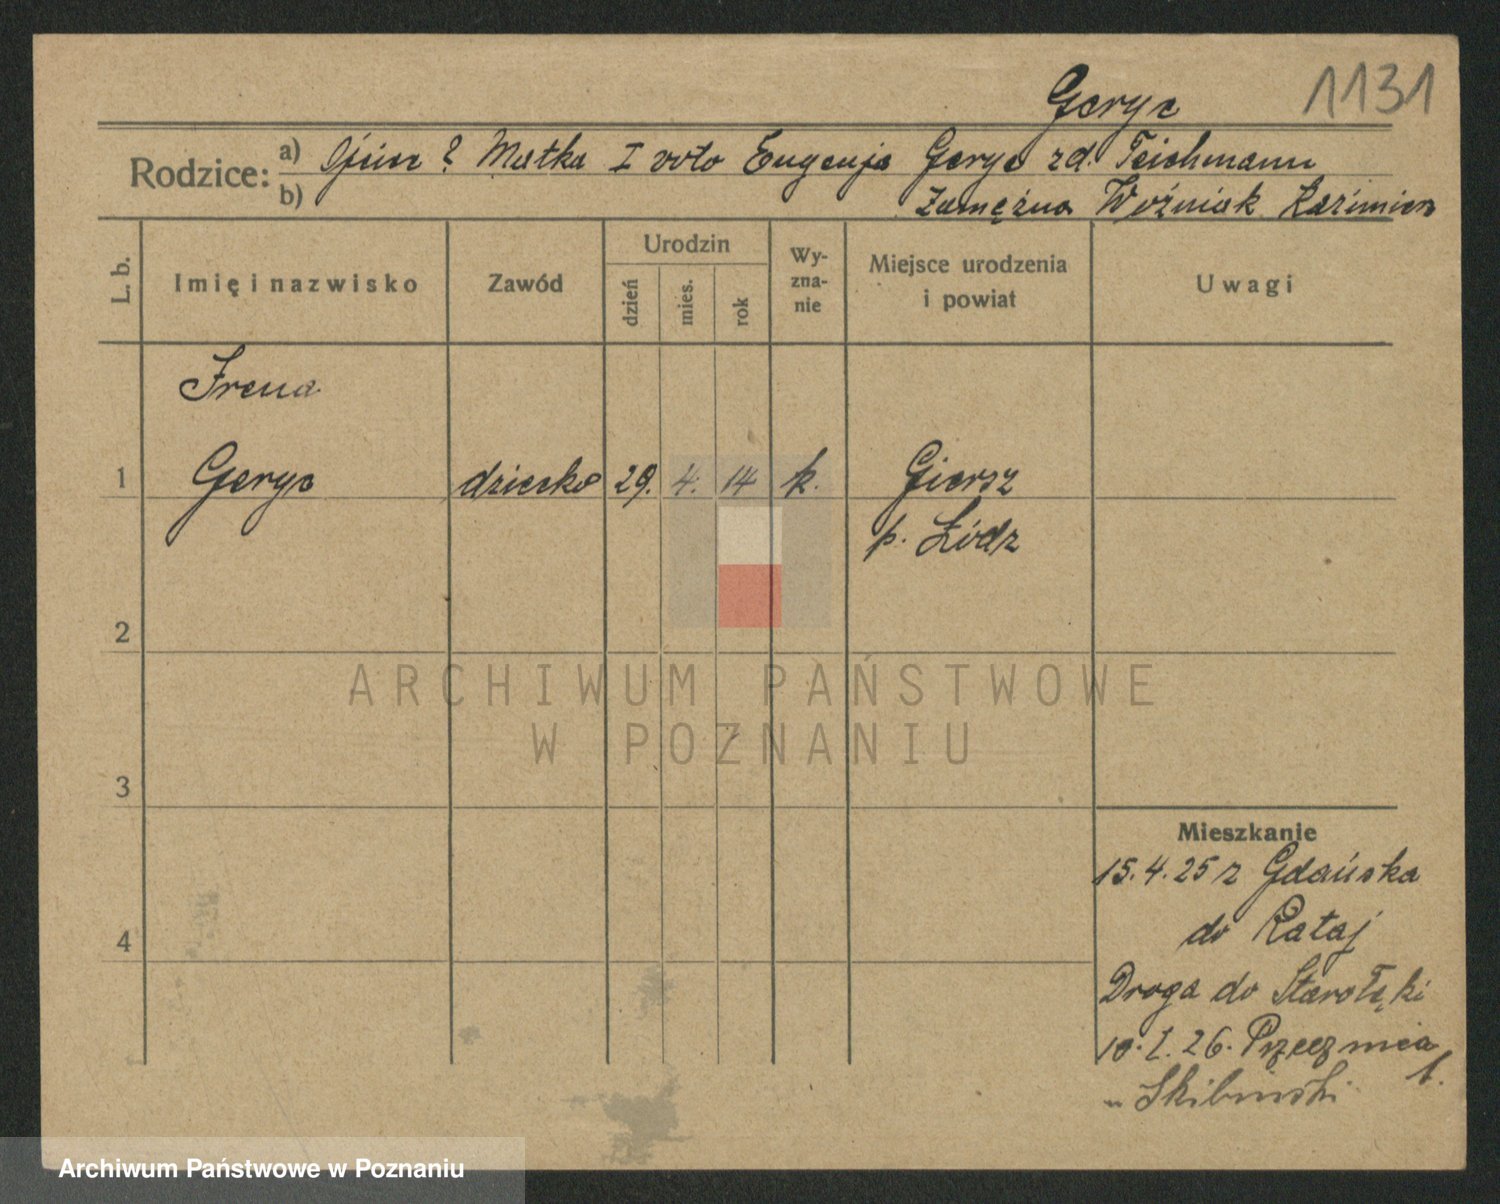 Geryc 1131
Rodzice: a) Ojciec ? Matka I voto Eugenja Geryc zd. Teichmann
b) Zamężna Woźniak Kazimierz
L. b. Imię i nazwisko Zawód Urodzin dzień mies. rok Wy-zna-nie Miejsce urodzenia i powiat Uwagi
Irena
1 Geryc dziecko 29. 4. 14 k. Giersz
p. Łódz
2
ARCHIWUM PAŃSTWOWE
W POZNANIU
3
Mieszkanie
15.4.25 z Gdańska
4 do Rataj
Droga do Starołęki
10.1.26. Przecznica 1.
u Skibiński
Archiwum Państwowe w Poznaniu